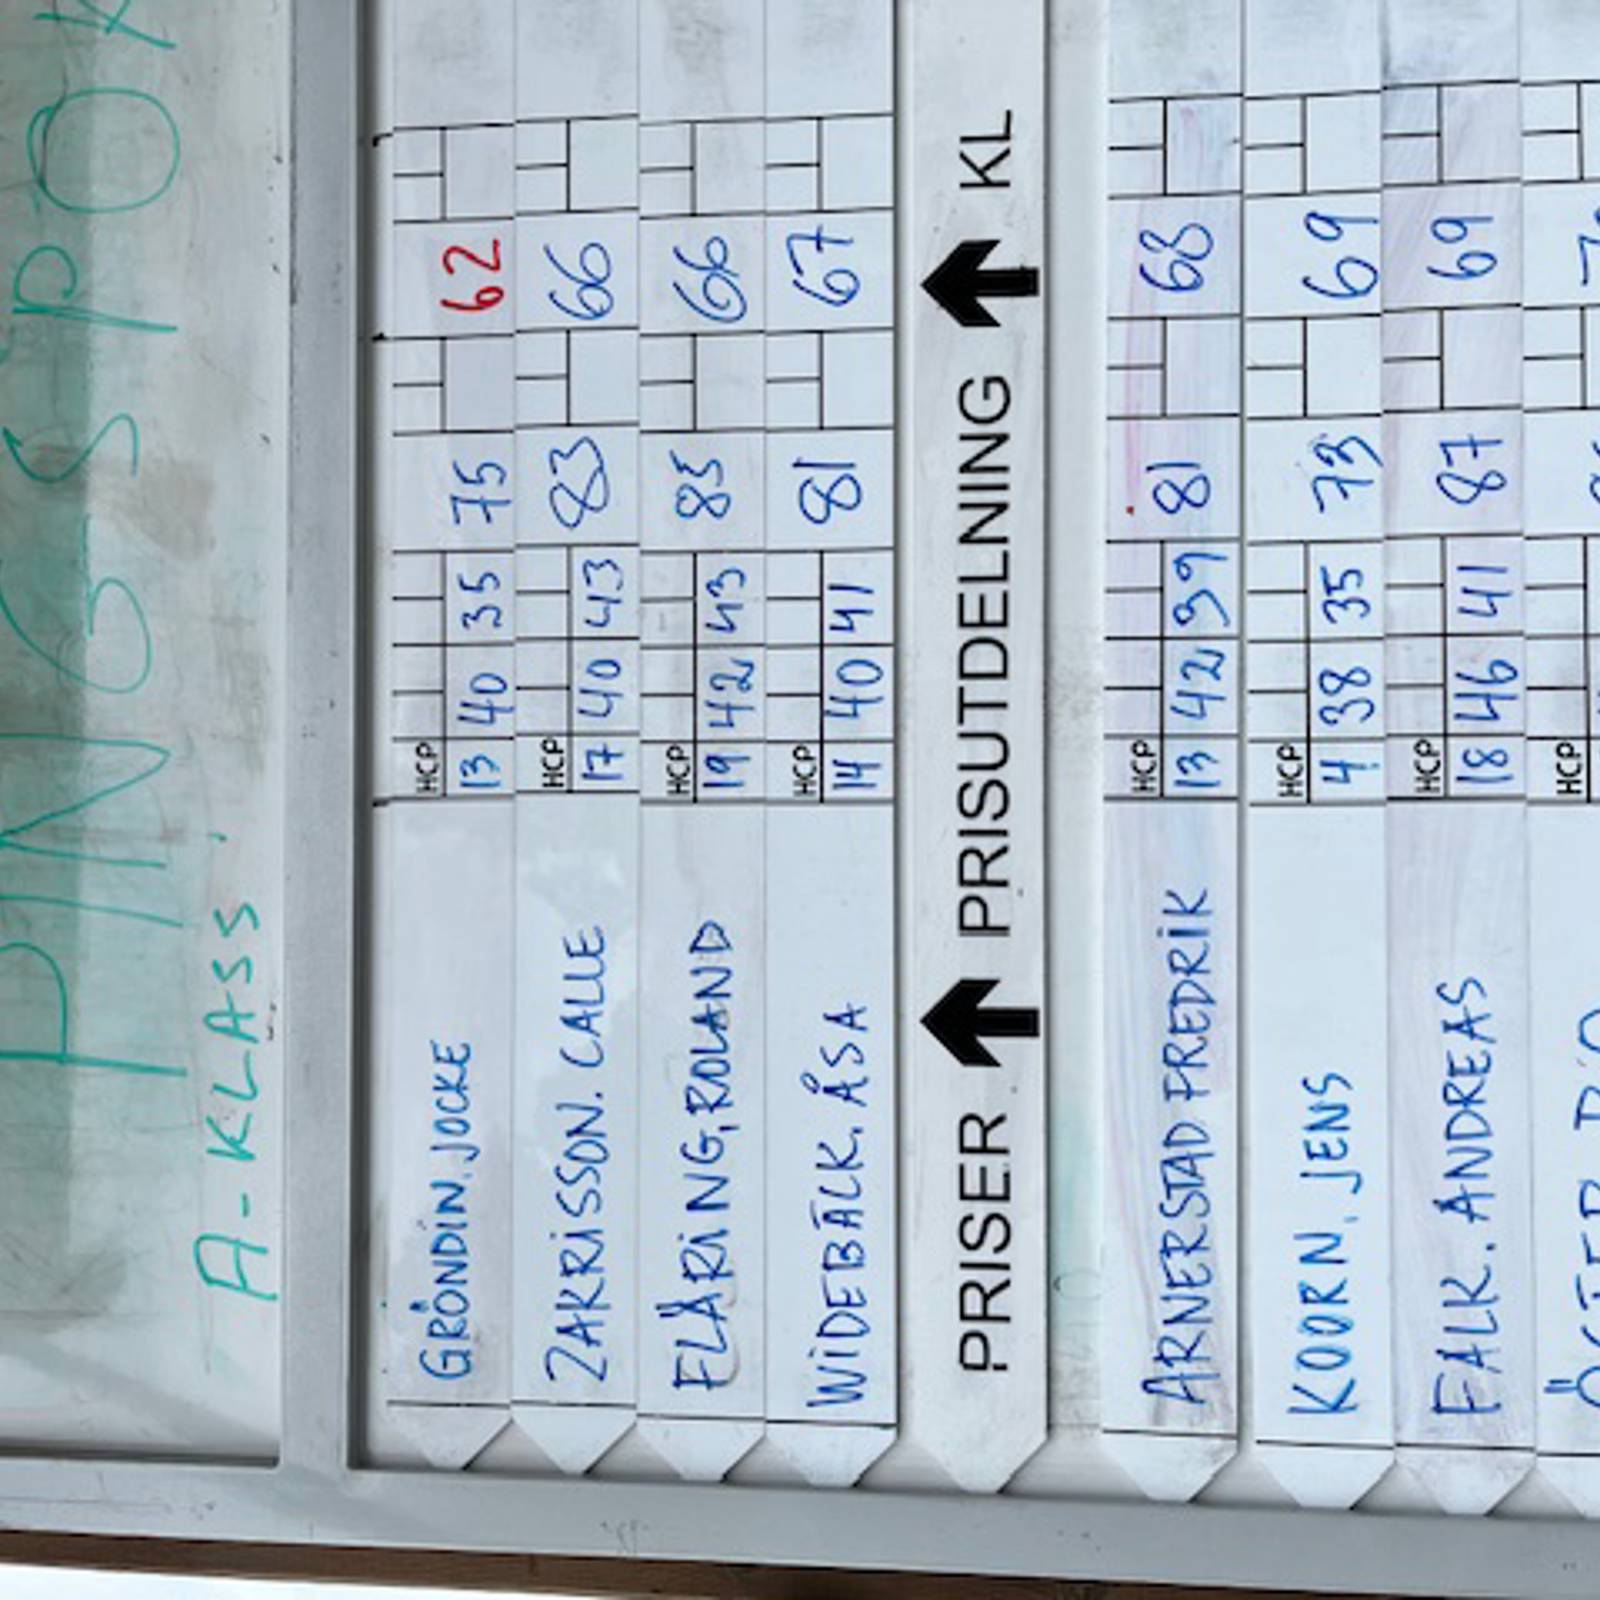 PINGSPOK
A-KLASS
GRÖNDIN, JOCKE HCP 13 40 35 75 62
ZAKRISSON. CALLE HCP 17 40 43 83 66
FLÄRING, ROLAND HCP 19 42 43 85 66
WIDEBÄCK. ÅSA HCP 14 40 41 81 67
PRISER PRISUTDELNING KL
ARNERSTAD FREDRIK HCP 13 42 39 81 68
KOORN. JENS HCP 4 38 35 73 69
FALK. ANDREAS HCP 18 46 41 87 69
HCP